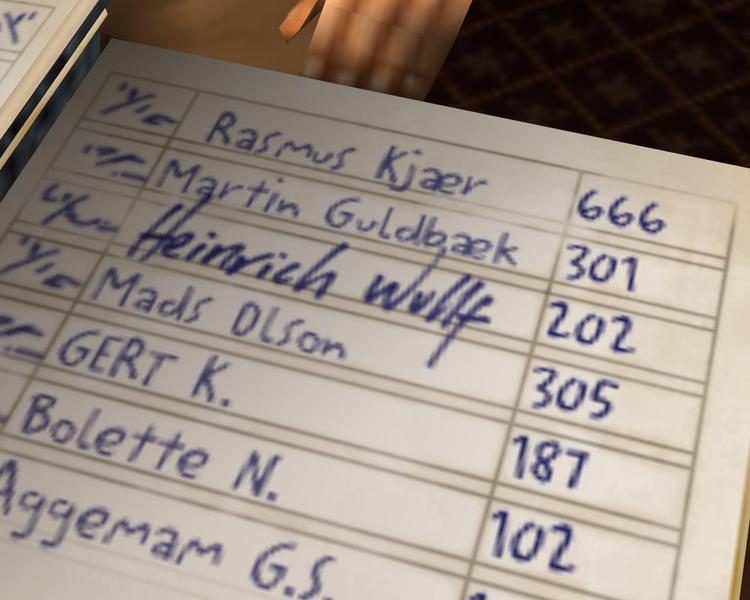 Rasmus Kjær 666
Martin Guldbæk 301
Heinrich Wulff 202
Mads Olson 305
GERT K. 187
Bolette N. 102
Aggemam G.S.